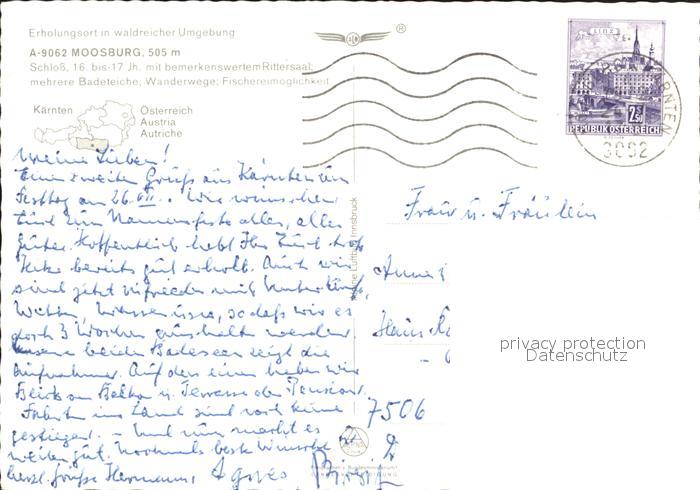 Erholungsort in waldreicher Umgebung
A-9062 MOOSBURG, 505 m
Schloß, 16. bis 17. Jh. mit bemerkenswertem Rittersaal;
mehrere Badeteiche; Wanderwege; Fischereimöglichkeit
Kärnten
Österreich
Austria
Autriche
®
LINZ
2.50
REPUBLIK ÖSTERREICH
KÄRNTEN
Meine Lieben!
Einen zweiten Gruß aus Kärnten zum
Festtag am 26.VII.. Wir wünschen
Euch zum Namensfeste alles, alles
Gute. Hoffentlich habt Ihr Euch trotz
Hitze bereits gut erholt. Auch wir
sind jetzt zufrieden mit Unterkunft,
Wetter, Wasser usw, so daß wir es
doch 3 Wochen aushalten werden.
Unsere beiden Badeseen zeigt die
Aufnahme. Auf den einen haben wir
Blick am Balkon u. Terrasse der Pension.
Fahrten ins Land sind noch keine
gestiegen. - Und nun macht es
weiter gut. Nochmals beste Wünsche u.
herzl. Grüße Hermann, Agnes
Frau u. Fräulein
Haus
7506
Innsbruck
privacy protection
Datenschutz